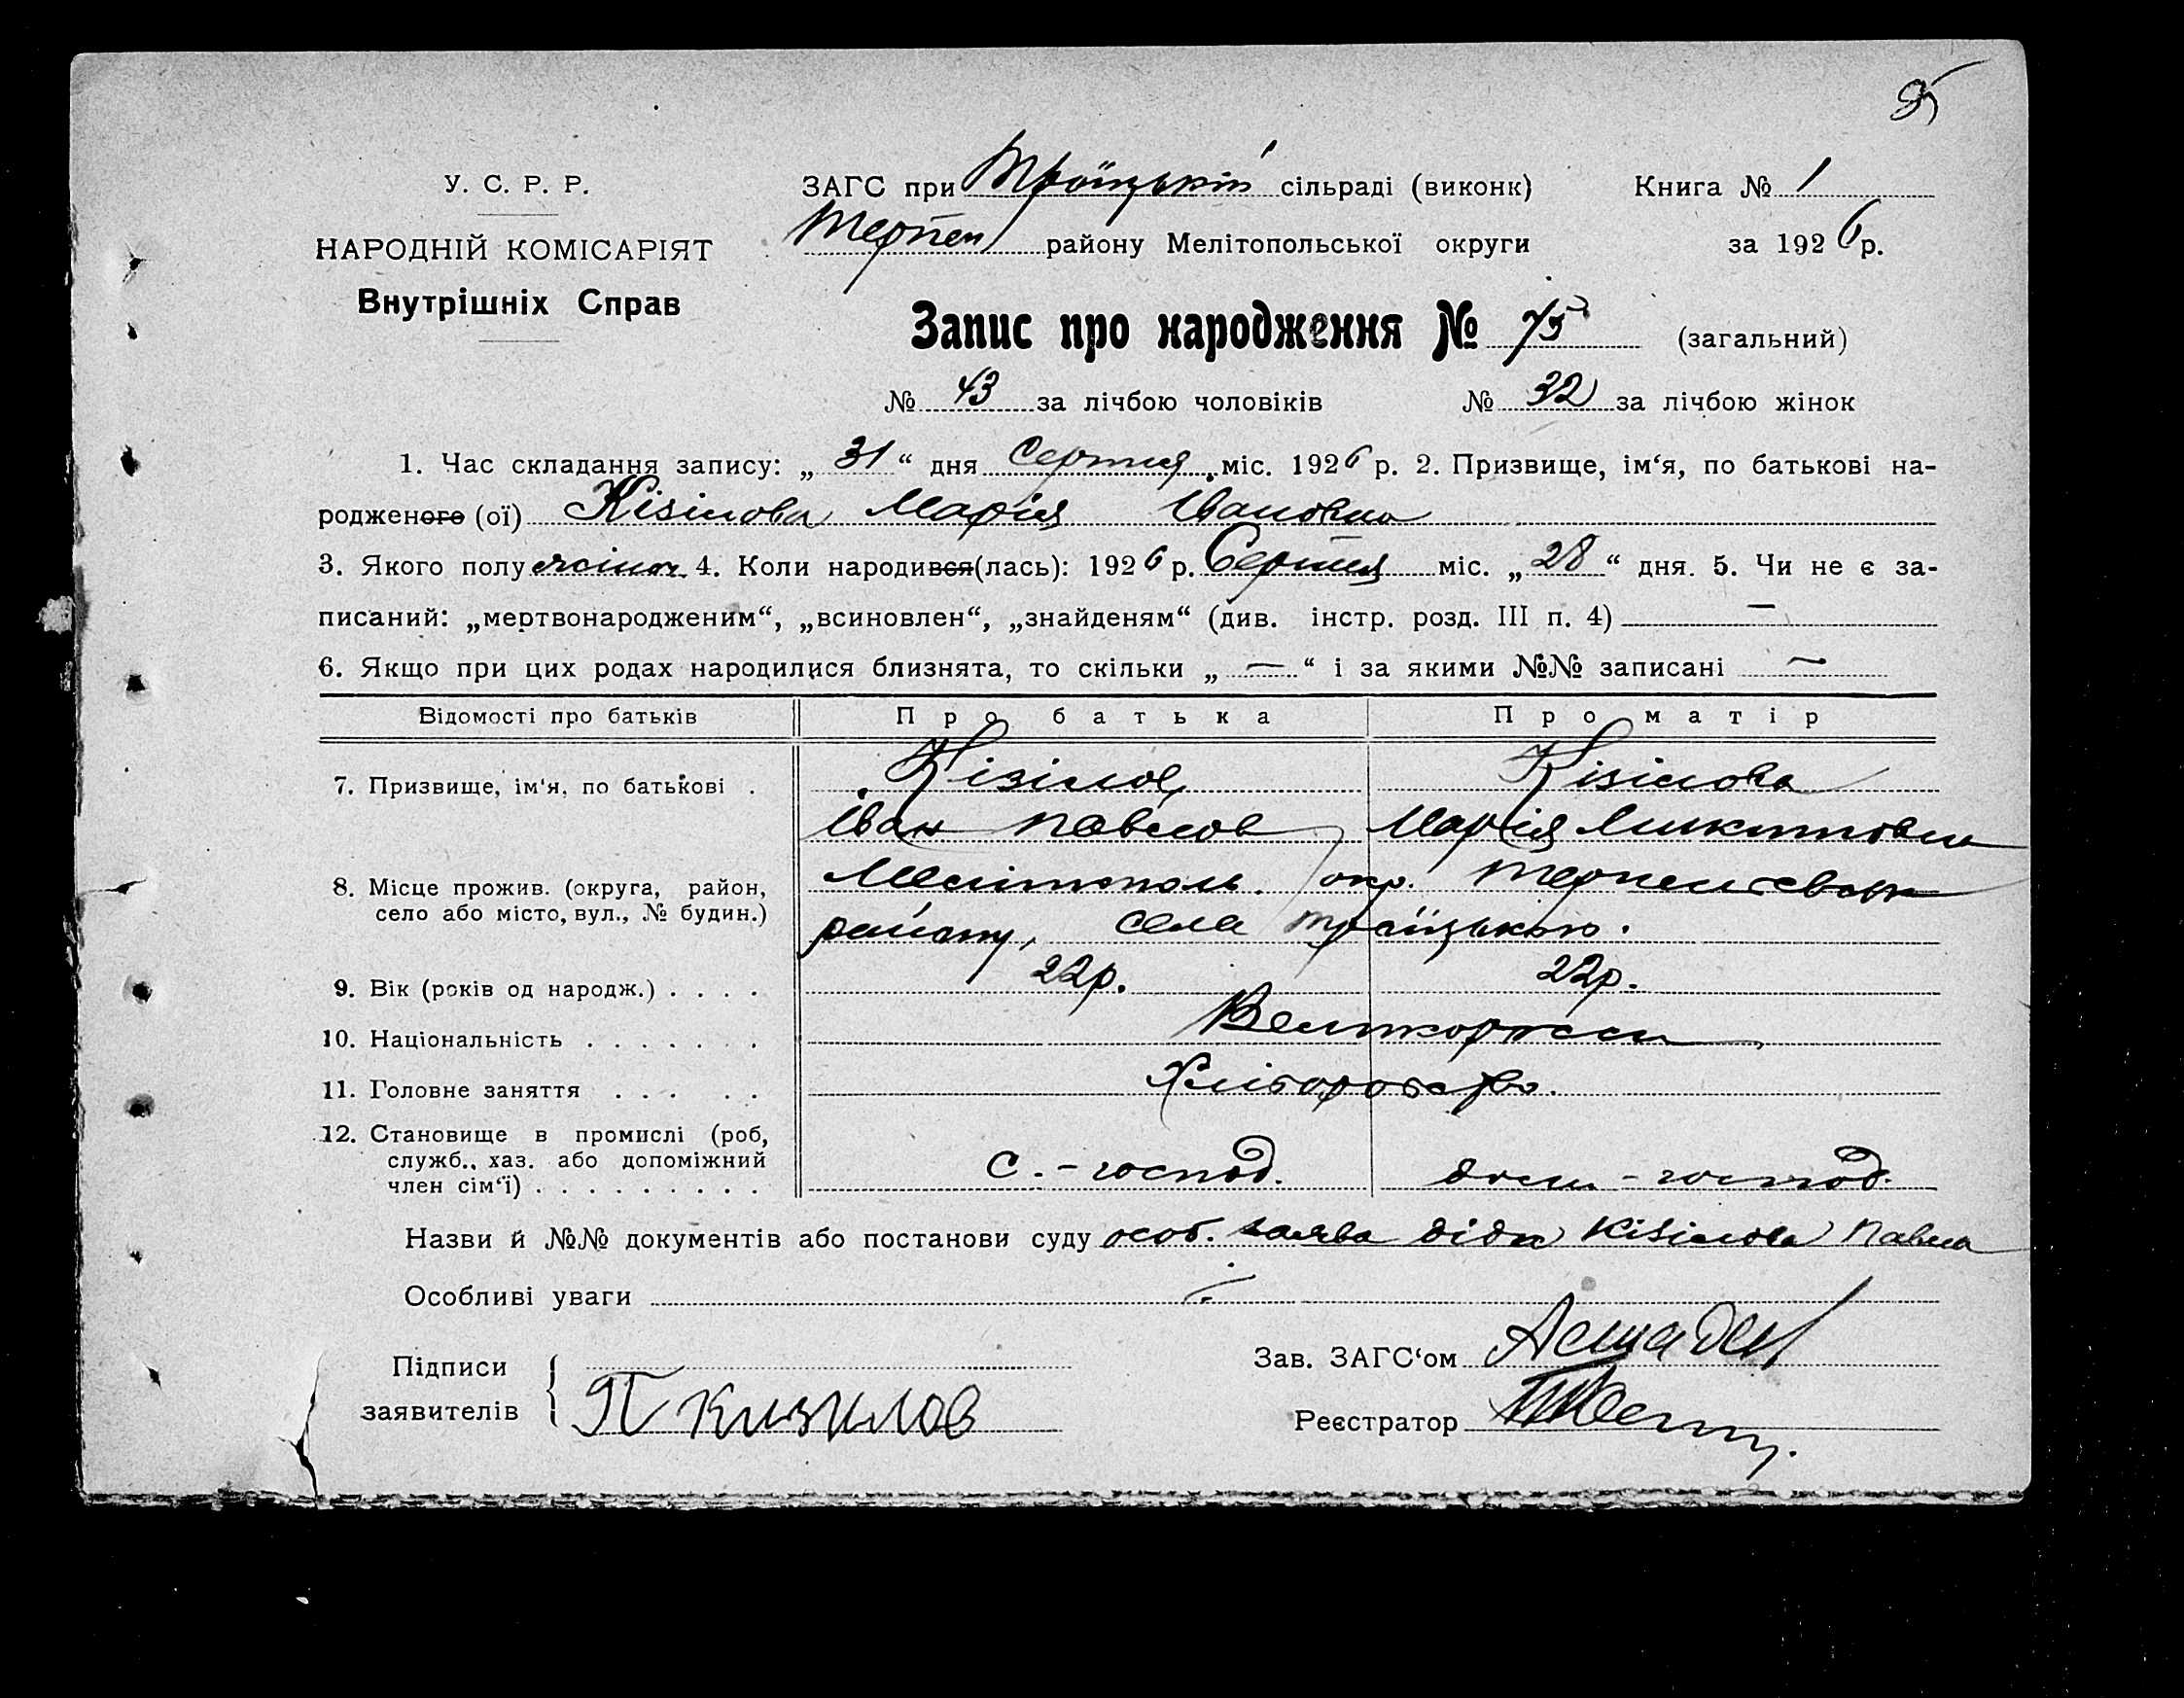 У. С. Р. Р.
НАРОДНІЙ КОМІСАРІЯТ
Внутрішніх Справ
ЗАГС при Троїцькій сільраді (виконк) Книга № 1
Терпен району Мелітопольської округи за 1926 р.
Запис про народження № 75 (загальний)
№ 43 за лічбою чоловіків № 32 за лічбою жінок
1. Час складання запису: „31“ дня Серпня міс. 1926 р. 2. Призвище, ім‘я, по батькові на-
родженого (ої) Кізілова Марія Івановна
3. Якого полу жіноч. 4. Коли народився(лась): 1926 р. Серпня міс. „28“ дня. 5. Чи не є за-
писаний: „мертвонародженим“, „всиновлен“, „знайденям“ (див. інстр. розд. III п. 4) —
6. Якщо при цих родах народилися близнята, то скільки „—“ і за якими №№ записані —
Відомості про батьків Про батька Про матір
7. Призвище, ім‘я, по батькові . Кізілов Кізілова
Іван Павлов Марія Микитовна
8. Місце прожив. (округа, район, село або місто, вул., № будин.) Мелітополь. окр.
району, села Троїцького.
9. Вік (років од народж.) . . . . 22р. 22р.
10. Національність . . . . . . . Великороси
11. Головне заняття . . . . . Хліборобство.
12. Становище в промислі (роб,
служб., хаз. або допоміжний
член сім‘ї) . . . . . . . . . с.-господ. дом-господ.
Назви й №№ документів або постанови суду особ. заява діда Кізілова Павла
Особливі уваги
Підписи
заявителів П Кизилов
Зав. ЗАГС‘ом
Реєстратор